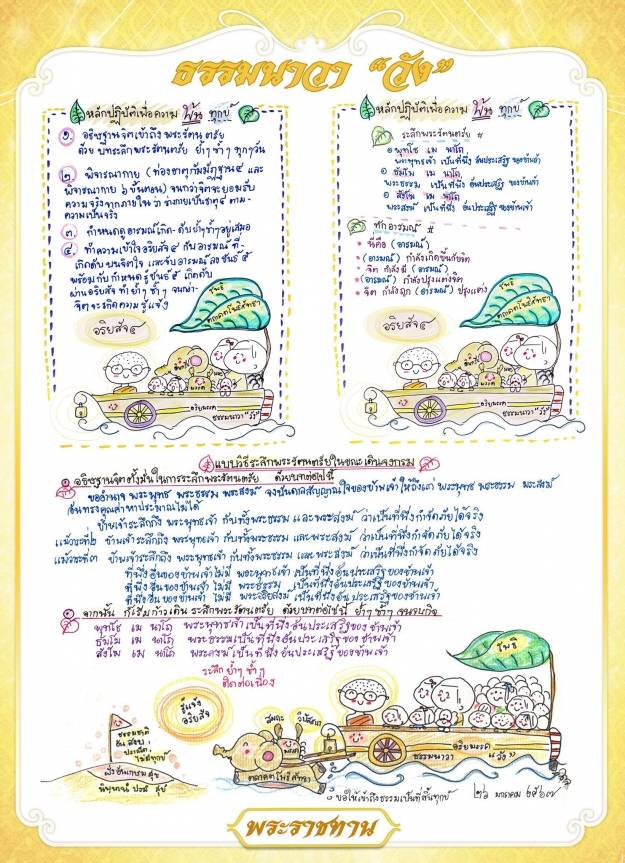 ธรรมนาวา “วัง”
หลักปฏิบัติเพื่อความ พ้น ทุกข์
๑. อธิษฐานจิตเข้าถึง พระรัตนตรัย
ด้วย บทระลึกพระรัตนตรัย ย้ำๆ ซ้ำๆ ทุกๆ วัน
๒ พิจารณากาย (ท่องธาตุกัมมัฏฐาน ๔ และ
พิจารณากาย ๖ ขั้นตอน) จนกว่าจิตจะยอมรับ
ความจริงจากภายใน ว่า ร่างกายเป็นธาตุ ๔ ตาม-
ความเป็นจริง
๓. กำหนดดูอารมณ์เกิด-ดับซ้ำๆอยู่เสมอ
๔. ทำความเข้าใจ อริยสัจ ๔ กับ อารมณ์ ที่-
เกิดดับ บนจิตใจ และจับอารมณ์ ลง ขันธ์ ๕
พร้อมกับ กำหนด รู้ ขันธ์ ๕ เกิดดับ
ผ่าน อริยสัจ ๔ ย้ำ ซ้ำๆ จนกว่า-
จิตจะเกิดความ รู้แจ้ง
อริยสัจ ๔
โพธิ
ตถาคตโพธิสัทธา
มรรค
อริยมรรค
ธรรมนาวา "วัง"
หลักปฏิบัติเพื่อความ พ้น ทุกข์
ระลึกพระรัตนตรัย #
๑ พุทโธ เม นาโถ
พระพุทธเจ้า เป็นที่พึ่ง อันประเสริฐ ของข้าพเจ้า
๑ ธัมโม เม นาโถ
พระธรรม เป็นที่พึ่ง อันประเสริฐ ของข้าพเจ้า
๑ สังโฆ เม นาโถ
พระสงฆ์ เป็นที่พึ่ง อันประเสริฐ ของข้าพเจ้า
ทักอารมณ์ #
นี่คือ (อารมณ์)
(อารมณ์) กำลังเกิดขึ้นกับจิต
จิต กำลังมี (อารมณ์)
(อารมณ์) กำลังปรุงแต่งจิต
จิต กำลังถูก (อารมณ์) ปรุงแต่ง
อริยสัจ ๔
โพธิ
ตถาคตโพธิสัทธา
มรรค
อริยมรรค
ธรรมนาวา "วัง"
แบบวิธีระลึกพระรัตนตรัยในขณะเดินจงกรม
อธิษฐานจิตตั้งมั่นในการระลึกพระรัตนตรัย ด้วยบทต่อไปนี้
ขออำนาจ พระพุทธ พระธรรม พระสงฆ์ จงบันดลสัญญาณใจของข้าพเจ้า ให้ถึงแก่ พระพุทธ พระธรรม พระสงฆ์
อันทรงคุณค่าหาประมาณไม่ได้
ข้าพเจ้าระลึกถึง พระพุทธเจ้า กับทั้งพระธรรม และพระสงฆ์ ว่าเป็นที่พึ่งกำจัดภัยได้จริง
แม้วาระที่๒ ข้าพเจ้าระลึกถึง พระพุทธเจ้า กับทั้งพระธรรม และพระสงฆ์ ว่าเป็นที่พึ่งกำจัดภัยได้จริง
แม้วาระที่๓ ข้าพเจ้าระลึกถึง พระพุทธเจ้า กับทั้งพระธรรม และ พระสงฆ์ ว่าเป็นที่พึ่งกำจัดภัยได้จริง
ที่พึ่งอื่นของข้าพเจ้าไม่มี พระพุทธเจ้า เป็นที่พึ่งอันประเสริฐของข้าพเจ้า
ที่พึ่งอื่นของข้าพเจ้าไม่มี พระธรรม เป็นที่พึ่งอันประเสริฐของข้าพเจ้า
ที่พึ่งอื่นของข้าพเจ้าไม่มี พระสงฆ์ เป็นที่พึ่งอันประเสริฐของข้าพเจ้า
จากนั้น ก็เริ่มก้าวเดิน ระลึกพระรัตนตรัย ด้วยบทต่อไปนี้ ย้ำๆ ซ้ำๆ
พุทโธ เม นาโถ พระพุทธเจ้าเป็นที่พึ่งอันประเสริฐของข้าพเจ้า
ธัมโม เม นาโถ พระธรรมเป็นที่พึ่งอันประเสริฐของ ข้าพเจ้า
สังโฆ เม นาโถ พระสงฆ์เป็นที่พึ่งอันประเสริฐของข้าพเจ้า
ระลึก ย้ำๆ ซ้ำๆ
ติดต่อเนื่อง
รู้แจ้ง
อริยสัจ
ธรรมชาติ
อันสงบ,
ประณีต,
ไม่มีทุกข์
ฝั่งอันเกษม สุข
นิพพานํ ปรมํ สุขํ
สมถะ วิปัสสนา
ตถาคตโพธิสัทธา
โพธิ
อริยมรรค
ธรรมนาวา "วัง"
ขอให้เข้าถึงธรรมเป็นที่สิ้นทุกข์
๒๖ มกราคม ๒๕๖๗
พระราชทาน